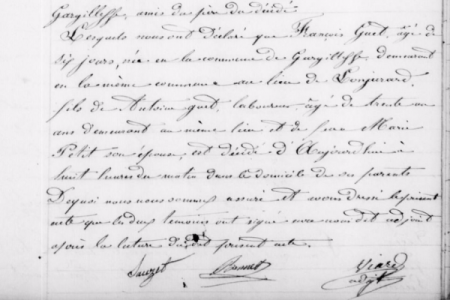 Gargilesse, amis du père du décédé.
Lesquels nous ont déclaré que François Guet, âgé de
dix jours, née en la commune de Gargilesse, demeurant
en la même commune au lieu de
fils de Antoine Guet, laboureur, âgé de trente un
ans demeurant au même lieu et de Marie
Petit son épouse, est décédé d'Aujourd'hui à
huit heures du matin dans le domicile de ses parents
Dequoi nous nous sommes assuré et avons dressé le présent
acte que les deux témoins ont signé avec nous dit adjoint
après la lecture du dit présent acte.
adjt